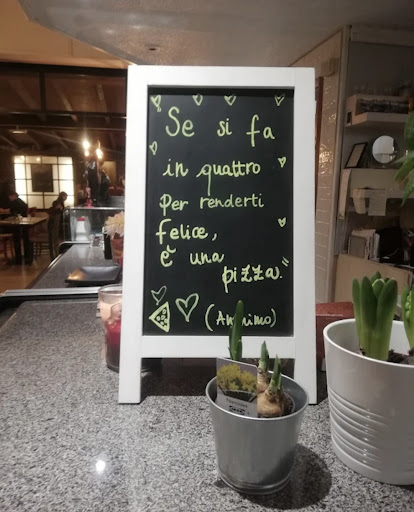 "Se si fa
in quattro
per renderti
felice,
è una
pizza."
(Anonimo)